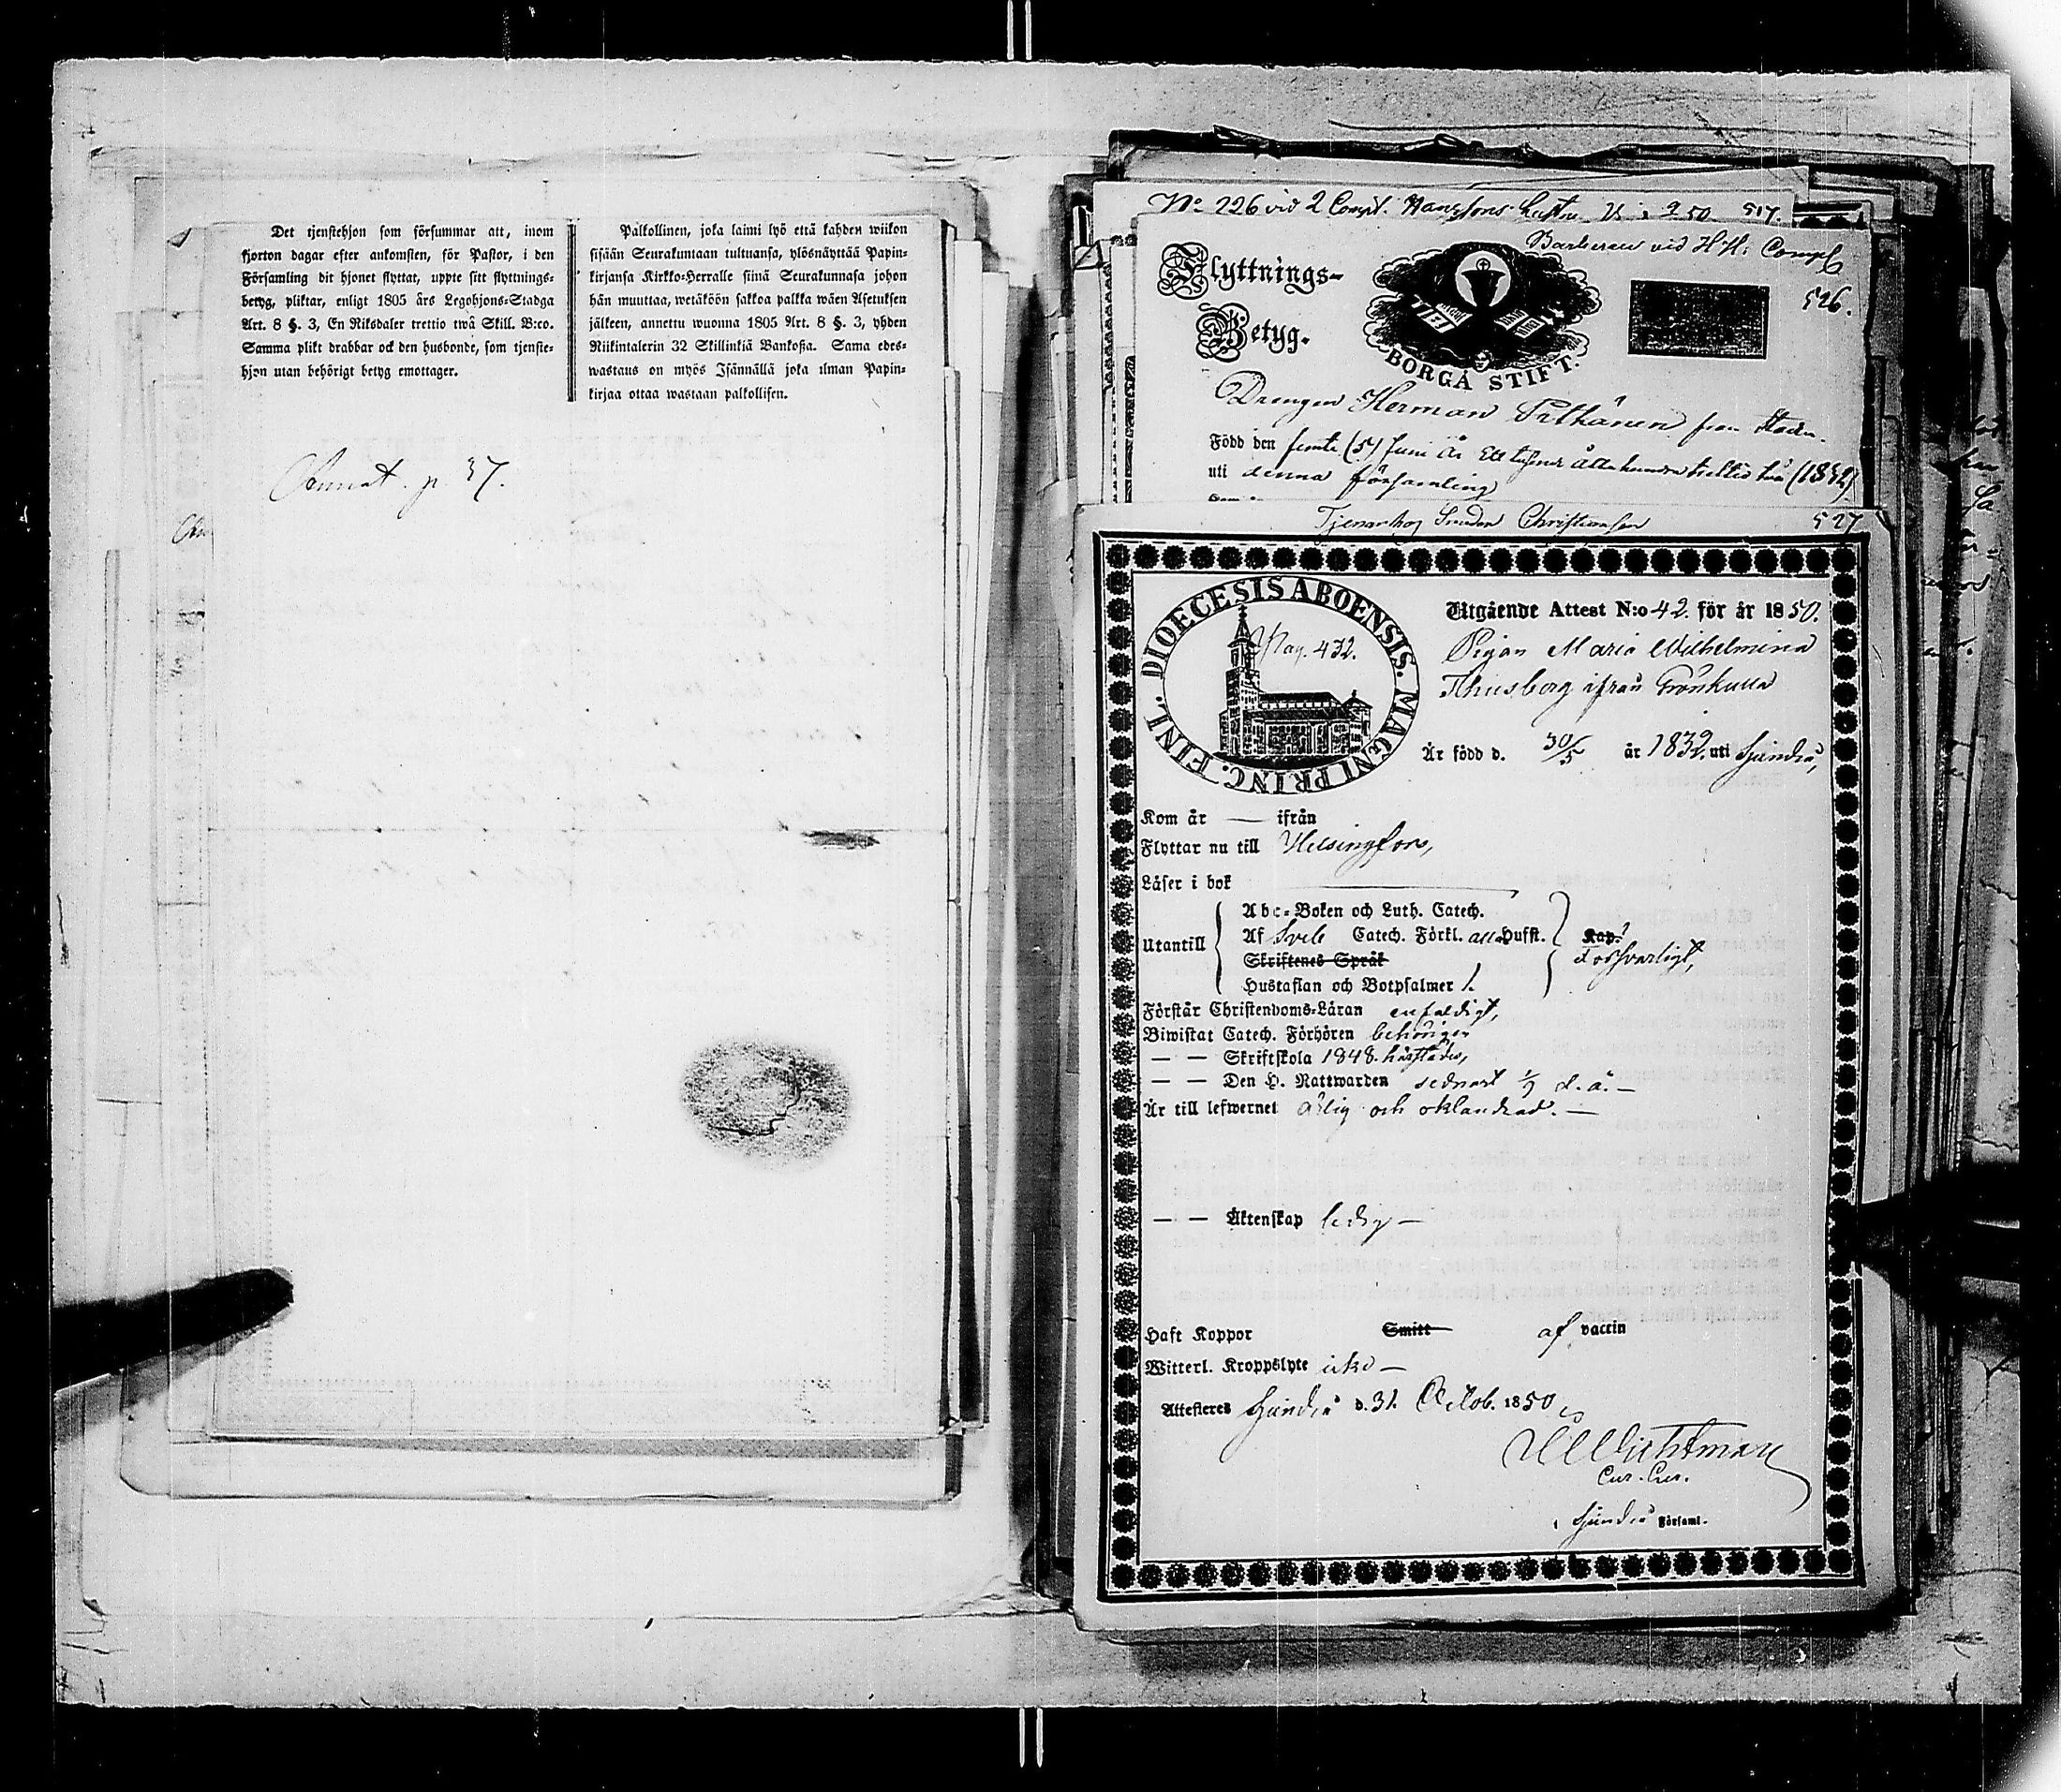 Det tjenstehjon som försummar att, inom
fjorton dagar efter ankomsten, för Pastor, i den
Församling dit hjonet flyttat, uppte sitt flyttnings-
betyg, pliktar, enligt 1805 års Legohjons-Stadga
Art. 8 §. 3, En Riksdaler trettio twå Skill. B:co.
Samma plikt drabbar ock den husbonde, som tjenste-
hjon utan behörigt betyg emottager.
Palkollinen, joka laimi lyö että kahden wiikon
sisään Seurakuntaan tultuansa, ylösnäyttää Papin-
kirjansa Kirkko-Herralle siinä Seurakunnasa johon
hän muuttaa, wetäköön sakkoa palkka wäen Asetuksen
jälkeen, annettu wuonna 1805 Art. 8 §. 3, yhden
Riikintalerin 32 Skillinkiä Bankosta. Sama edes-
wastaus on myös Isännällä joka ilman Papin-
kirjaa ottaa wastaan palkollisen.
Annot. p. 37.
No 226 vid 2 Comp. 50 517.
Barberare vid H:H: Comp
526.
Flyttnings-
Betyg.
BORGÅ STIFT.
Drengen Herman från Staden.
Född den femte (5) Juni År Ett tusend åtta hundra trettio två (1832)
uti denna församling
Tjenar hos Smeden Christiansson 527
DIOECESIS ABOENSIS. MAGNI PRINC. FINL.
Pag. 432.
Utgående Attest N:o 42. för år 1850.
Pigan Maria Wilhelmina
Thusberg ifrån Grönkulla
Är född d. 30/5 år 1832. uti Sjundeå,
Kom år — ifrån
Flyttar nu till Helsingfors,
Läser i bok
Utantill
Abc-Boken och Luth. Catech.
Af Sveb Catech. Förkl. alla Hufst.
Kap.
Skriftenes Språk
försvarligt,
Hustaflan och Botpsalmer 1.
Förstår Christendoms-Läran enfaldigt,
Biwistat Catech. Förhören behörigen
— — Skriftskola 1848. härstädes,
— — Den H. Nattwarden sednast d. å. —
Är till lefwernet ärlig och oklandrad. —
— — Äktenskap ledig —
Haft Koppor Smitt af vaccin
Witterl. Kroppslyte icke —
Attesteras Sjundeå d. 31. Octob. 1850,
Cur. Cur.
i Sjundeå Församl.